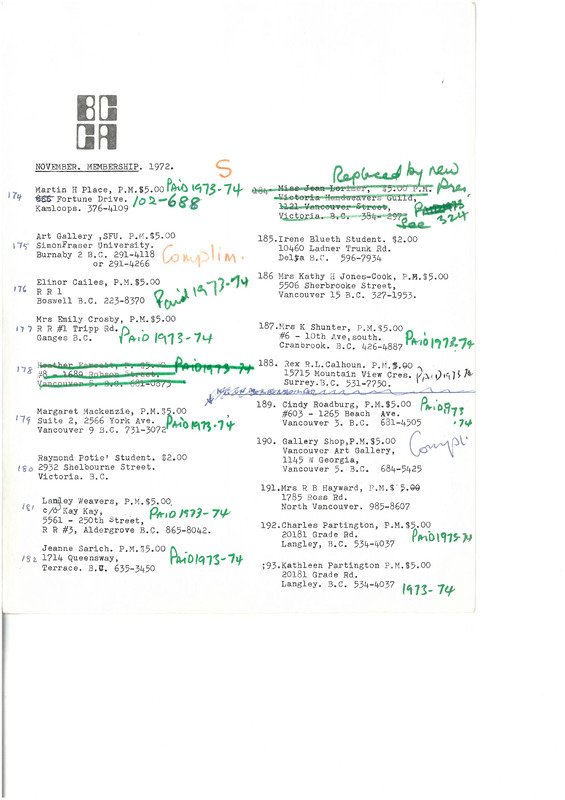 BC
CA
NOVEMBER. MEMBERSHIP. 1972.
S
174 Martin H Place, P.M.$5.00 PAiD 1973-74
Fortune Drive. 102-688
Kamloops. 376-4109
Art Gallery ,SFU. P.M.$5.00
175 SimonFraser University.
Burnaby 2 B.C. 291-4118 Complim.
or 291-4266
Elinor Cailes, P.M.$5.00
176 R R 1 Paid 1973-74
Boswell B.C. 223-8370
Mrs Emily Crosby, P.M.$5.00
177 R R #1 Tripp Rd.
Ganges B.C. PAiD 1973-74
178 Heather P. $5.00 PAiD 1973-74
#8 - 1689 Robson Street.
Vancouver 5. B.C. 681-0875
Margaret Mackenzie, P.M.$5.00
179 Suite 2, 2566 York Ave. PAiD 1973-74
Vancouver 9 B.C. 731-3072
Raymond Potie' Student. $2.00
180 2932 Shelbourne Street.
Victoria. B.C.
Langley Weavers, P.M.$5.00
181 c/o Kay Kay, PAiD 1973-74
5561 - 250th Street,
R R #3, Aldergrove B.C. 865-8042.
Jeanne Sarich. P.M.$5.00
182 1714 Queensway, PAiD 1973-74
Terrace. B.C. 635-3450
Replaced by new
Pres.
184 Miss Jean Lorimer, $5.00 P.M.
Victoria Handweavers Guild,
1121 Vancouver Street,
Victoria. B.C. 384-297
See 324
185.Irene Blueth Student. $2.00
10460 Ladner Trunk Rd.
Delta B.C. 596-7934
186 Mrs Kathy H Jones-Cook, P.M.$5.00
5506 Sherbrooke Street,
Vancouver 15 B.C. 327-1953.
187.Mrs K Shunter, P.M.$5.00
#6 - 10th Ave,south. PAiD 1973-74
Cranbrook. B.C. 426-4887
188. Rex R.L.Calhoun. P.M.$5.00
15715 Mountain View Cres. PAiD 1973 74
Surrey.B.C. 531-7750.
189. Cindy Roadburg, P.M.$5.00 PAiD 1973
#603 - 1265 Beach Ave. -74
Vancouver 5. B.C. 681-4505
190. Gallery Shop,P.M.$5.00 Compli.
Vancouver Art Gallery,
1145 W Georgia,
Vancouver 5. B.C. 684-5425
191.Mrs R B Hayward, P.M.$5.00
1785 Ross Rd.
North Vancouver. 985-8607
192.Charles Partington, P.M.$5.00
20181 Grade Rd. PAiD 1973-74
Langley, B.C. 534-4037
;93.Kathleen Partington P.M.$5.00
20181 Grade Rd.
Langley. B.C. 534-4037 1973-74